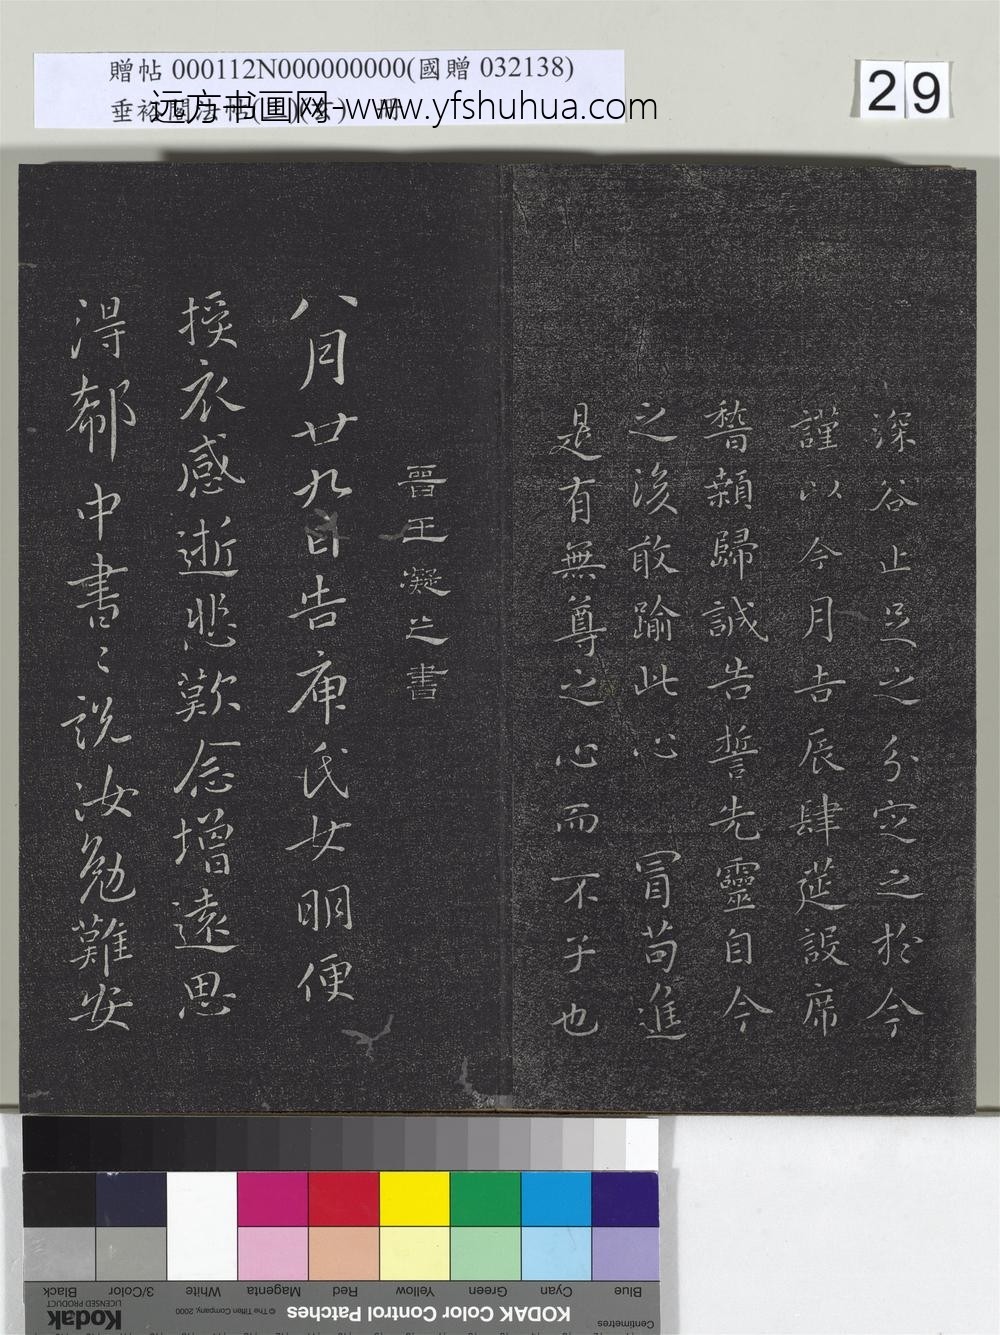 贈帖 000112N000000000(國贈 032138)
垂裕閣法帖
远方书画网-www.yfshuhua.com
29
深谷止足之分定之於今
謹以今月吉辰肆莚設席
稽顙歸誠告誓先靈自今
之後敢踰此心 冒苟進
是有無尊之心而不子也
晉王凝之書
八月廿九日告庾氏女明便
授衣感逝悲歎念增遠思
得郗中書〻說汝勉難安
Blue Cyan Green Yellow Red Magenta White 3/Color Black
Centimetres
KODAK Color Control Patches
© The Tiffen Company, 2000
Kodak
LICENSED PRODUCT